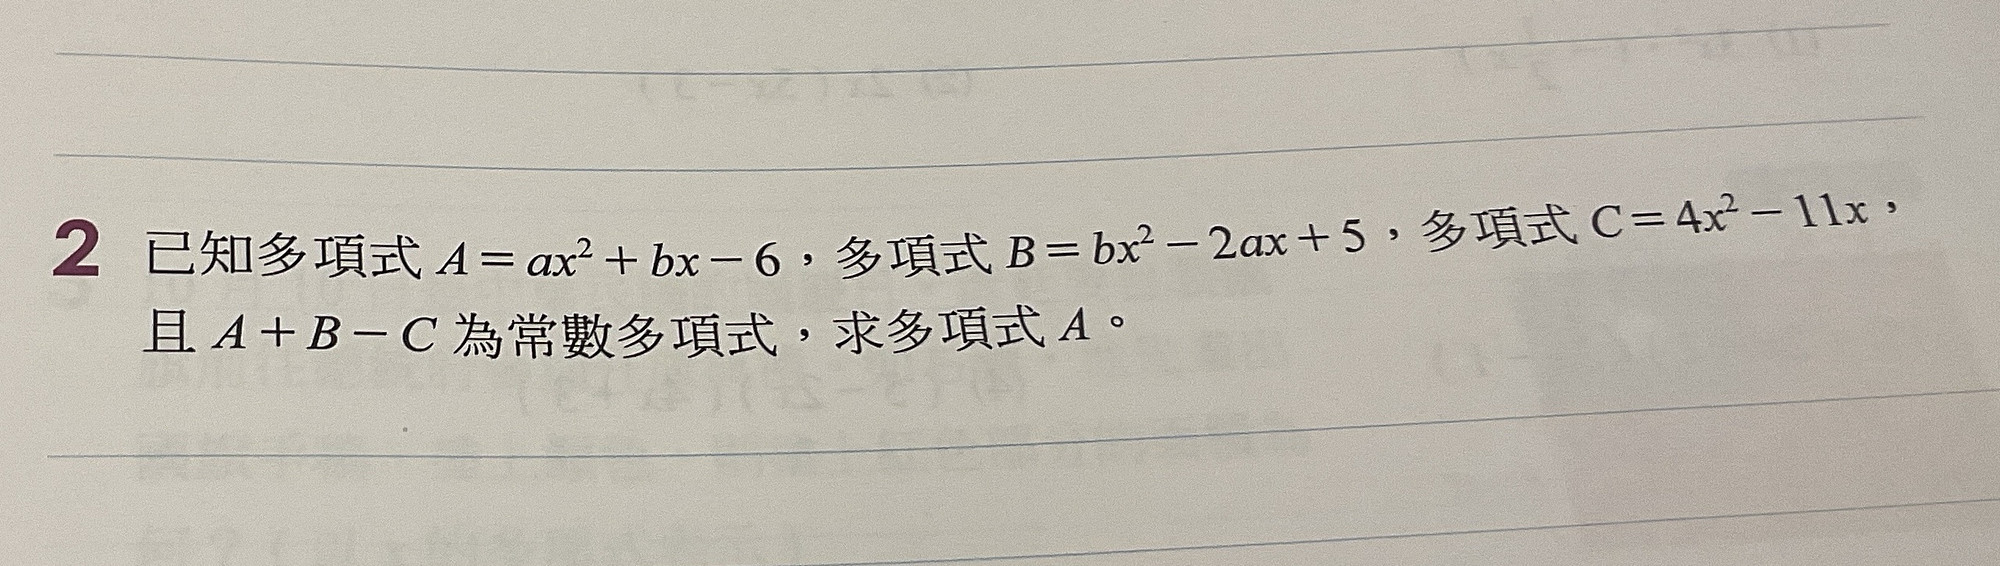 2 已知多項式 A=ax²+bx−6，多項式 B=bx²−2ax+5，多項式 C=4x²−11x，
且 A+B−C 為常數多項式，求多項式 A。